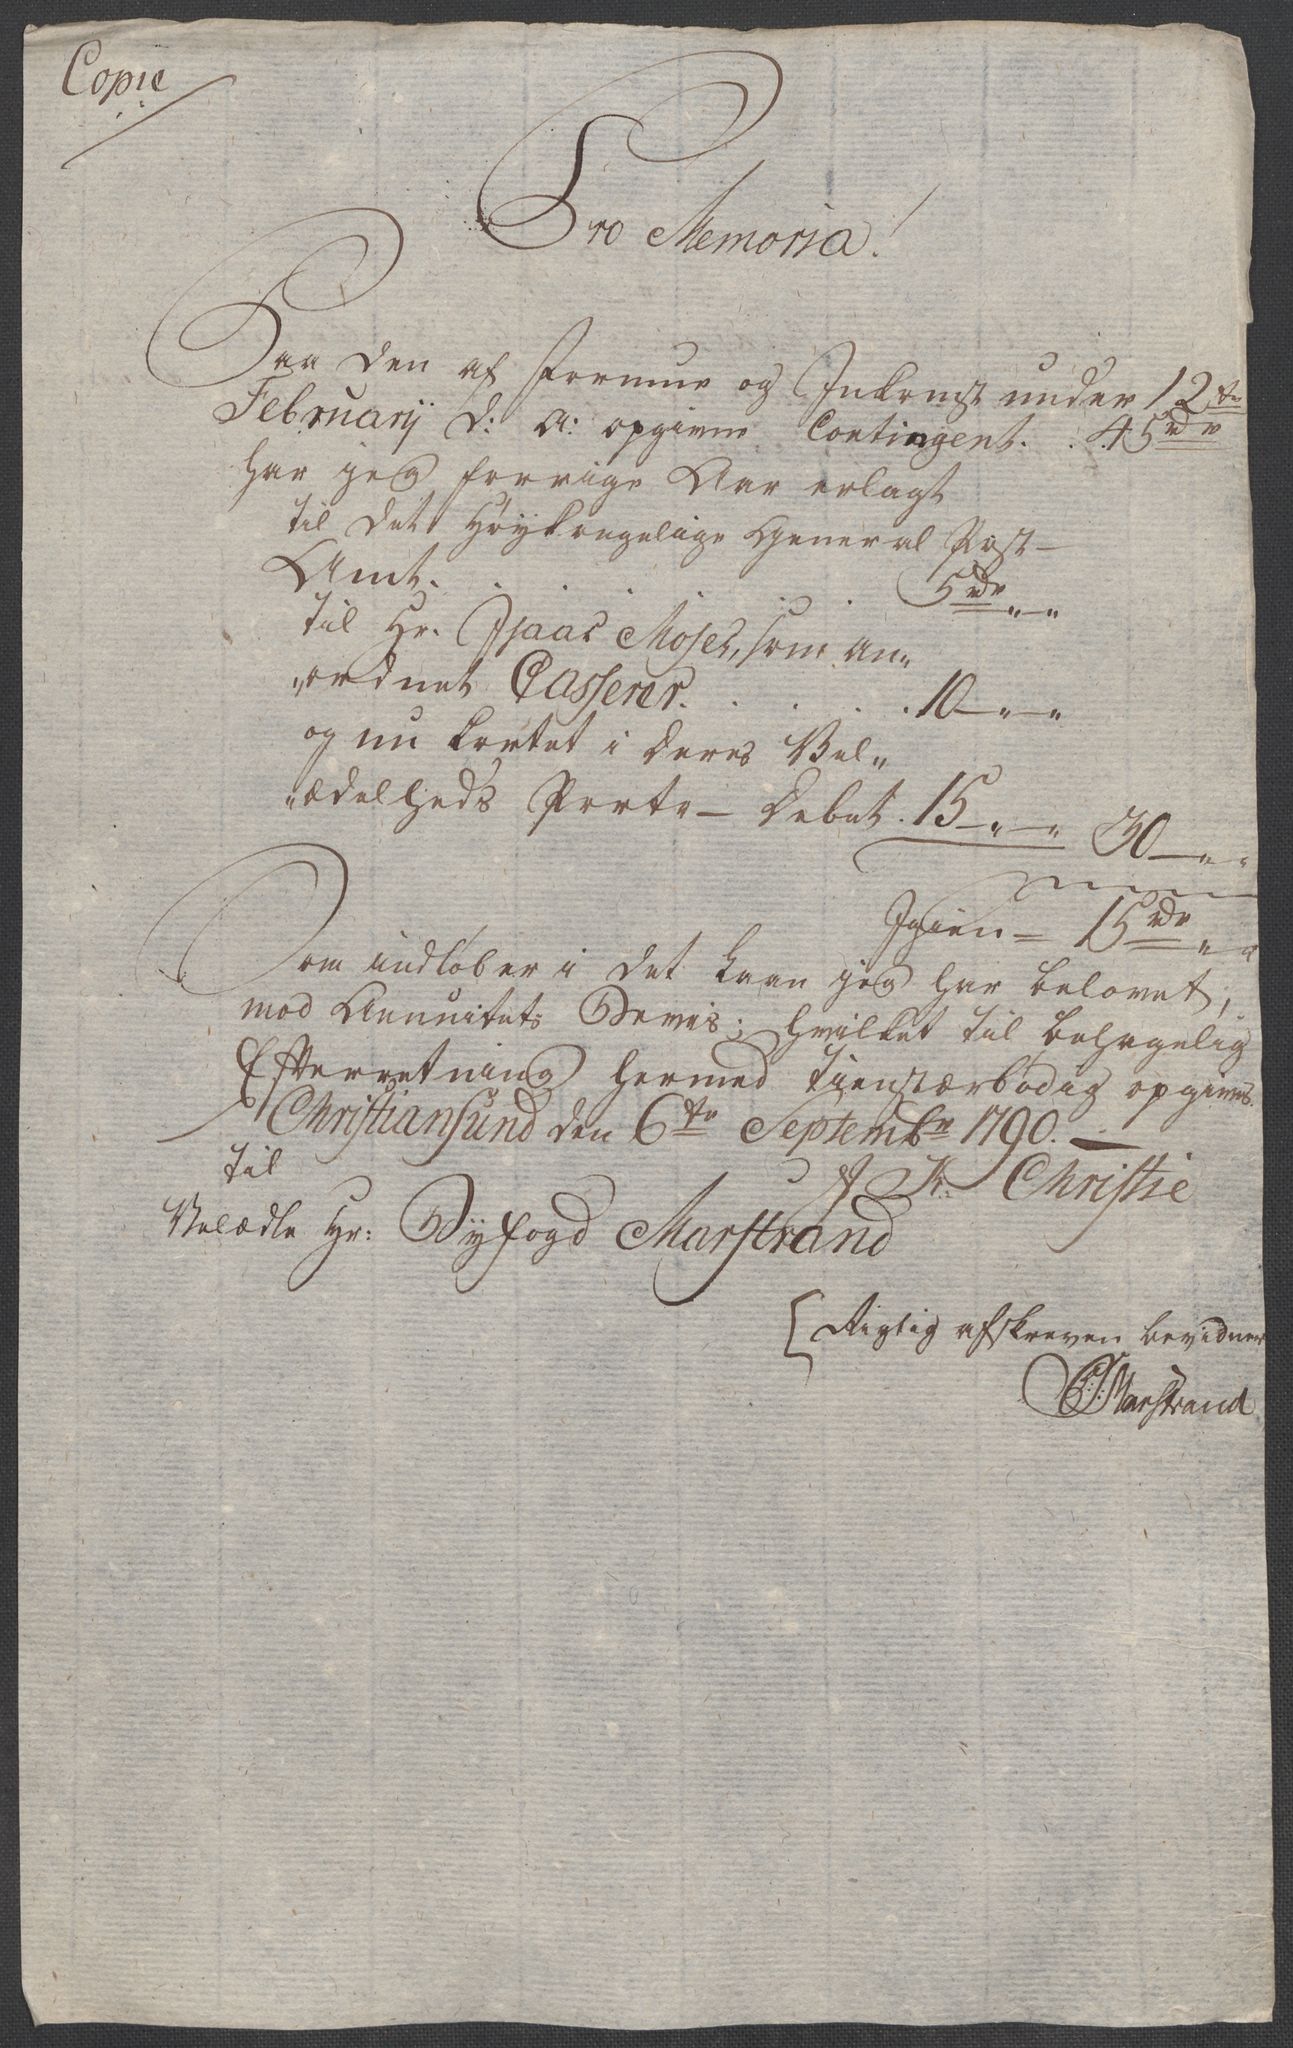 Copie
Pro Memoria!
Paa den af Formue og Indkomst under 12te
Februarij d: A: opgivne Contingent. . 45rdr
har jeg forrige Aar erlagt
til det Høykongelige General Post-
Amt. . . . . 5rdr „ - „
til Hr. Isaac Moses, som an„
„ordnet Casserer. . . . . 10 - „ - „
og nu kortet i Deres Vel„
„ædelheds Porto- Debet. 15 - „ - „ 30 - „ „
Igien = 15rdr „ „
Som indløber i det Laan jeg har belovet,
mod Annuitets Beviis; hvilket til behagelig
Efterretning hermed tienstærbødig opgives.
Christiansund den 6te Septembr 1790. -
til
J K: Christie
Velædle Hr: Byfogd Marstrand
Rigtig afskreven bevidner
Marstrand